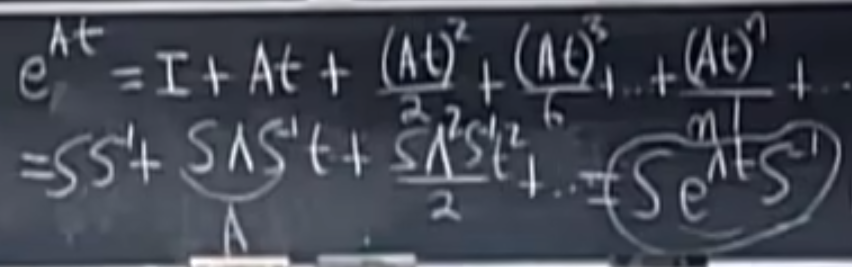 e^{At} = I + At + \frac{(At)^2}{2} + \frac{(At)^3}{6} + ... + \frac{(At)^n}{n!} + ...
= SS^{-1} + SΛS^{-1}t + \frac{SΛ^2S^{-1}t^2}{2} + ... = Se^{Λt}S^{-1}
A